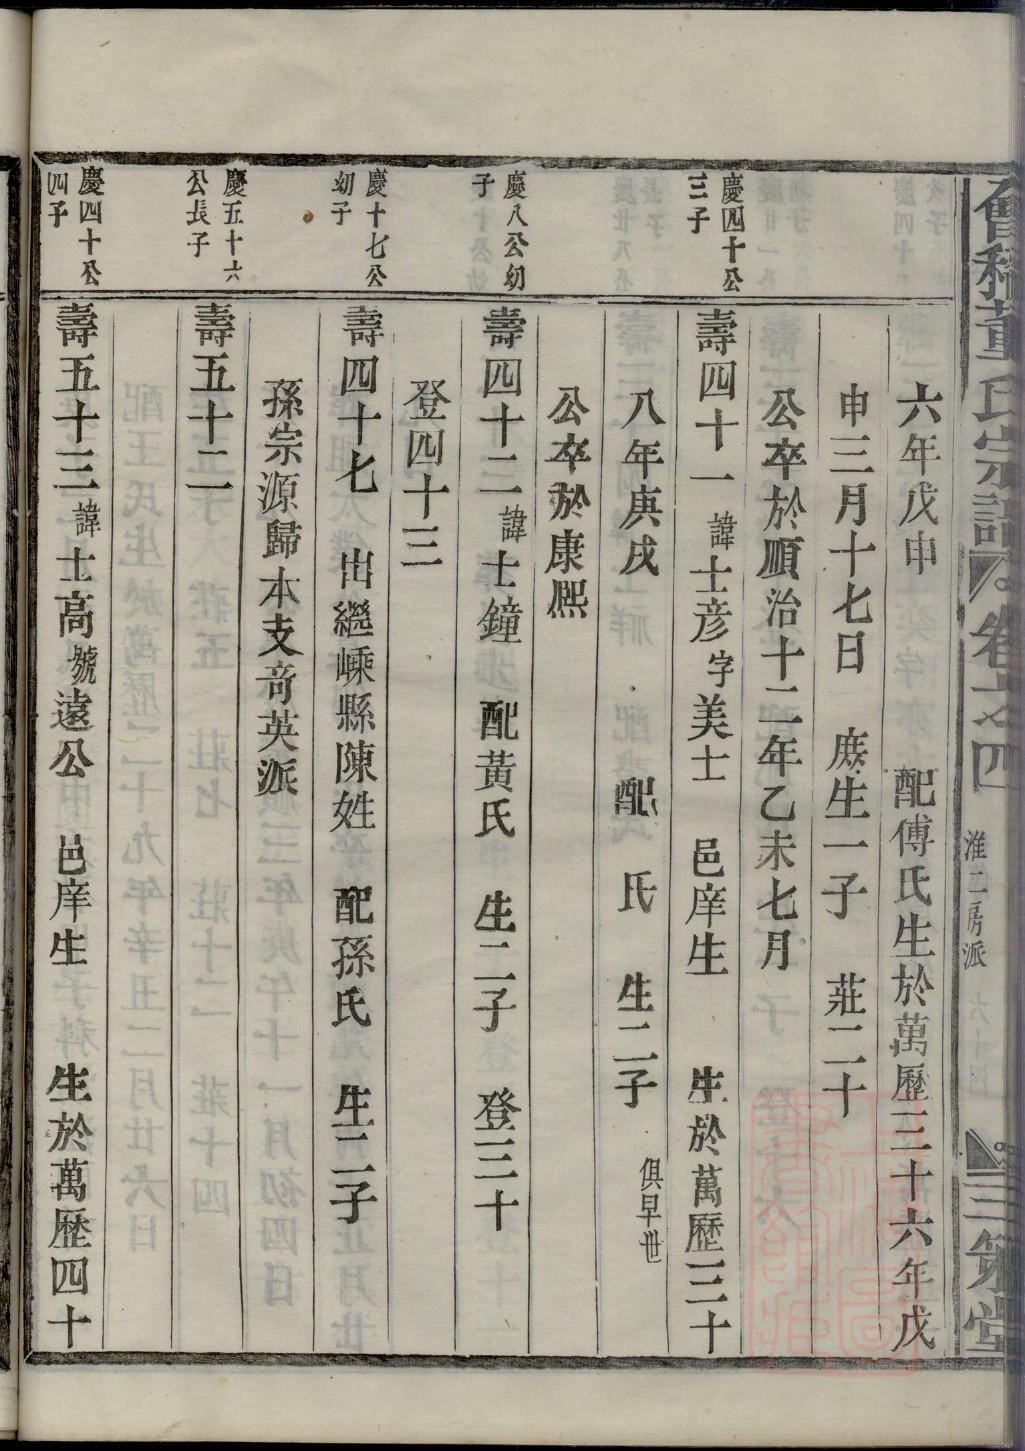 會稽董氏宗譜 卷之四 淮二房派 六十四 三策堂
六年戊申 配傅氏生於萬歷三十六年戊
申三月十七日 庶生一子 莊二十
公卒於順治十二年乙未七月
慶四十公三子
壽四十一諱士彥字美士 邑庠生 生於萬歷三十
八年庚戌 配 氏 生二子 俱早世
公卒於康熙
慶八公幼子
壽四十二諱士鐘 配黃氏 生二子 登三十
登四十三
慶十七公幼子
壽四十七 出繼嵊縣陳姓 配孫氏 生二子
孫宗源歸本支奇英派
慶五十六公長子
壽五十二
慶四十公四子
壽五十三諱士高號遠公 邑庠生 生於萬歷四十